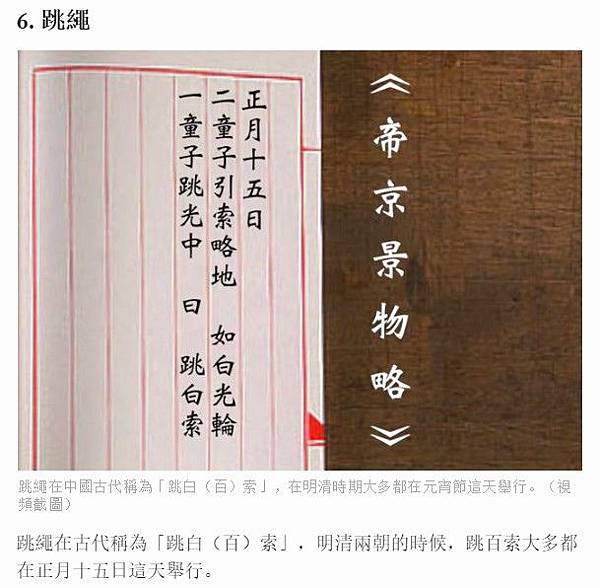 6. 跳繩
正月十五日
二童子引索略地 如白光輪
一童子跳光中 曰 跳白索
《帝京景物略》
跳繩在中國古代稱為「跳白（百）索」，在明清時期大多都在元宵節這天舉行。（視
頻截圖）
跳繩在古代稱為「跳白（百）索」，明清兩朝的時候，跳百索大多都
在正月十五日這天舉行。